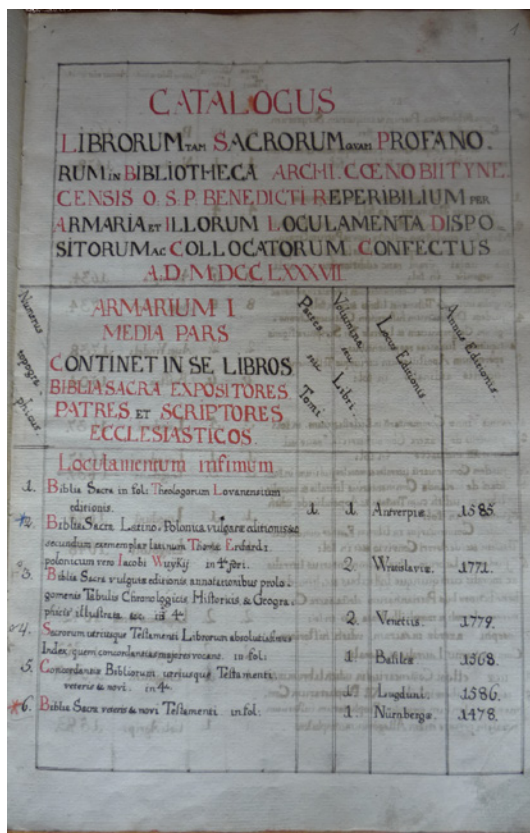 1
CATALOGUS
LIBRORUM TAM SACRORUM QVAM PROFANO.
RUM IN BIBLIOTHECA ARCHI. CŒNOBII TYNE.
CENSIS O. S. P. BENEDICTI REPERIBILIUM PER
ARMARIA ET ILLORUM LOCULAMENTA DISPO
SITORUM AC COLLOCATORUM CONFECTUS
A.D. M.DCC LXXXVII
Numerus topogra phicus.
ARMARIUM I
MEDIA PARS
CONTINET IN SE LIBROS
BIBLIA SACRA EXPOSITORES
PATRES ET SCRIPTORES
ECCLESIASTICOS.
Partes sive Tomi
Volumina seu Libri.
Locus Editionis.
Annus Editionis.
Loculamentum infimum
1. Biblia Sacra in foli: Theologorum Lovaniensium
editionis. 1 1 Antverpiæ 1585.
2. Biblia Sacra Latino. Polonica vulgatæ editionis &
secundum exemplar latinum Thomæ Erhardi
polonicum vero Iacobi Wuyki in 4to 2 Wratislaviæ 1771.
3. Biblia Sacra vulgatæ editionis annotationibus prolo.
gomenis Tabulis Chronologicis Historicis & Geogra.
phicis illustrata in 4to 2 Venetiis 1779.
4. Sacrorum utriusque Testamenti Librorum absolutissimus
Index, quem concordantias majores vocant. in fol: 1 Basileæ 1568.
5. Concordantiæ Bibliorum utriusque Testamenti
veteris & novi. in 4to 1 Lugduni 1586.
6. Biblia Sacra veteris & novi Testamenti in fol: 1 Nürnbergæ 1478.